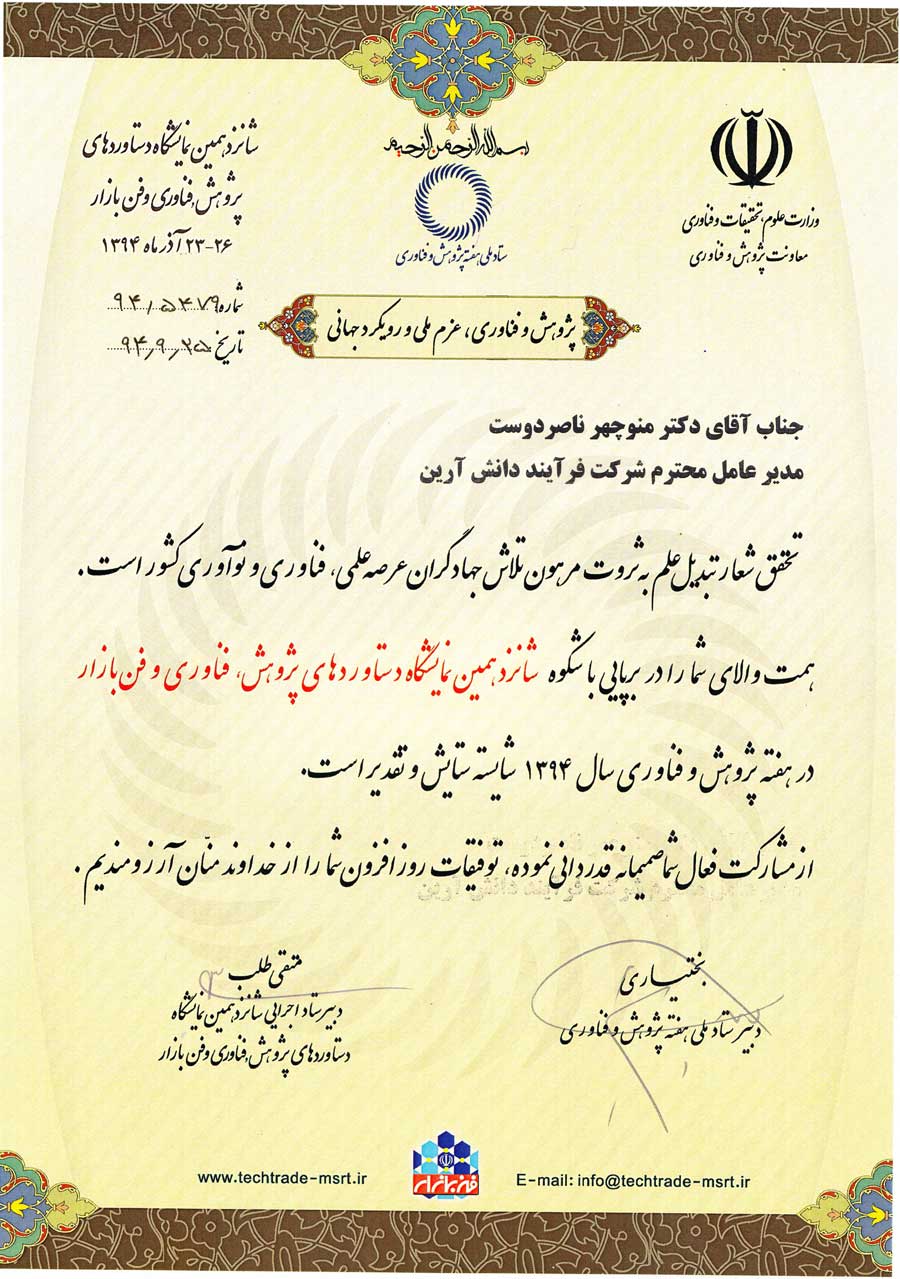 بسم الله الرحمن الرحیم
وزارت علوم، تحقیقات و فناوری
معاونت پژوهش و فناوری
ستاد ملی هفته پژوهش و فناوری
شانزدهمین نمایشگاه دستاوردهای
پژوهش، فناوری و فن بازار
۲۳-۲۶ آذر ماه ۱۳۹۴
شماره ۹۴/۵۴۷۹
تاریخ ۹۴/۹/۲۵
پژوهش و فناوری، عزم ملی و رویکرد جهانی
جناب آقای دکتر منوچهر ناصردوست
مدیر عامل محترم شرکت فرآیند دانش آرین
تحقق شعار تبدیل علم به ثروت مرهون تلاش جهادگران عرصه علمی، فناوری و نوآوری کشور است.
همت والای شما را در برپایی با شکوه شانزدهمین نمایشگاه دستاوردهای پژوهش، فناوری و فن بازار
در هفته پژوهش و فناوری سال ۱۳۹۴ شایسته ستایش و تقدیر است.
از مشارکت فعال شما صمیمانه قدردانی نموده، توفیقات روز افزون شما را از خداوند منّان آرزومندیم.
بختیاری
دبیر ستاد ملی هفته پژوهش و فناوری
متقی طلب
دبیر ستاد اجرایی شانزدهمین نمایشگاه
دستاوردهای پژوهش، فناوری و فن بازار
فن بازار
E-mail: info@techtrade-msrt.ir
www.techtrade-msrt.ir